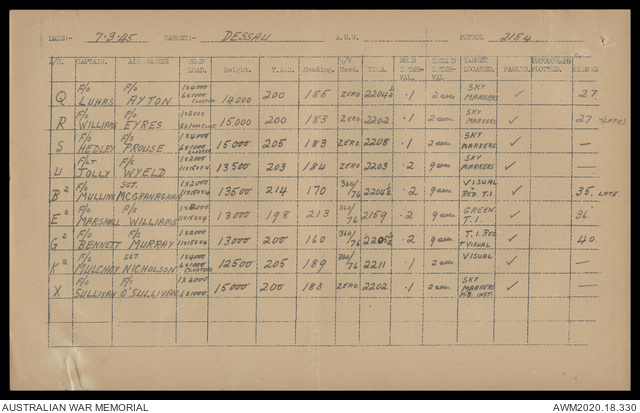 DATE:- 7·3·45 TARGET:- DESSAU A.U.W. PETROL 2154
A/C. CAPTAIN. AIR BOMBER BOMB LOAD. Height. T.A.S. Heading. W/V Used. TIME. BOMB INTERVAL. INTERVAL. TARGET LOCATED. PHOTOGRAPH PLOTTED. DEGREE
F/O F/S 1 x 4000 SKY
Q LUHRS AYTON 6x1000 CLUSTERS 14000 200 185 ZERO 2204½ ·1 2 secs. MARKERS ✓ 27
F/O F/S 1x2000 SKY
R WILLIAMS EYRES 15000 200 183 ZERO 2202 ·1 2 secs. MARKERS ✓ 27 (LATE)
F/O F/S 1x4000 SKY
S HEDLEY PROUSE 6x1000 CLUSTERS 15000 205 183 ZERO 2208 ·1 2 secs. MARKERS ✓ —
F/LT F/S 1x2000 SKY
U JOLLY WYELD 13500 203 184 ZERO 2203 ·2 9 secs. MARKERS ✓ —
F/O SGT. 1x2000 360/ VISUAL
B² MULLINS MCGRANAGHAN 13500 214 170 76 2204½ ·2 9 secs. RED. T.I. ✓ 35. LATE.
F/O F/S 1x2000 360/ GREEN
E² MARSHALL WILLIAMS 13000 198 213 76 2159 ·2 9 secs. T.I. ✓ 36
F/O F/S 1x2000 360/ T.I. Red
G² BENNETT MURRAY 13000 200 160 76 ·2 9 secs. + VISUAL ✓ 40
F/O SGT 1x4000 360/ VISUAL
K² MULCHAY NICHOLSON 6x1000 CLUSTERS 12500 205 189 76 2211 ·1 2 secs. ✓ —
F/O F/S 1 x 2000 SKY
X SULLIVAN O'SULLIVAN 6x1000. 15000 200 183 ZERO 2202 ·1 2 secs. MARKERS ✓ —
AUSTRALIAN WAR MEMORIAL AWM2020.18.330